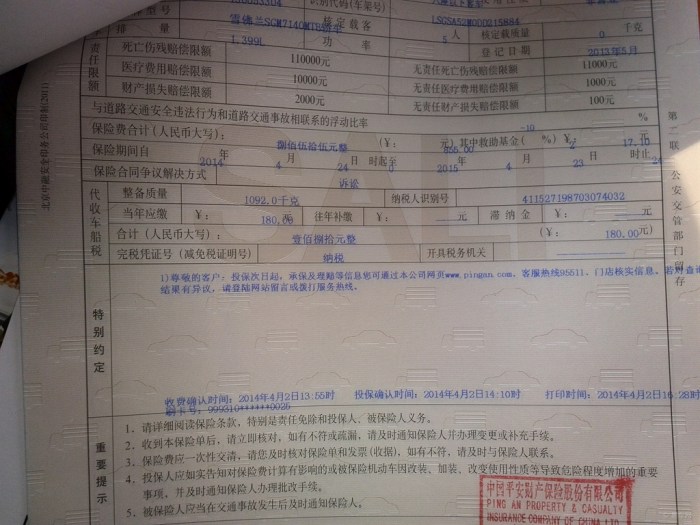 型号 识别代码(车架号)
雪佛兰SGM7140MTB轿车 核定载客 LSGSA52M0DD015884
排量 1.399L 功率 5 人 核定载质量 0 千克
登记日期 2013年5月
责任限额 死亡伤残赔偿限额 110000元 无责任死亡伤残赔偿限额 11000元
医疗费用赔偿限额 10000元 无责任医疗费用赔偿限额 1000元
财产损失赔偿限额 2000元 无责任财产损失赔偿限额 100元
与道路交通安全违法行为和道路交通事故相联系的浮动比率 -10 %
保险费合计(人民币大写): 捌佰伍拾伍元整 (¥: 855.00 元) 其中救助基金( 2 %) ¥: 17.10
保险期间自 2014 年 4 月 24 日 0 时起至 2015 年 4 月 23 日 24 时止
保险合同争议解决方式 诉讼
代收车船税 整备质量 1092.0千克 纳税人识别号 411527198703074032
当年应缴 ¥: 180.00 元 往年补缴 ¥: 元 滞纳金 ¥: 元
合计(人民币大写): 壹佰捌拾元整 (¥: 180.00 元)
完税凭证号(减免税证明号) 纳税 开具税务机关
特别约定
1)尊敬的客户:投保次日起,承保及理赔等信息您可通过本公司网页www.pingan.com、客服热线95511、门店核实信息,若对查询
结果有异议,请登陆网站留言或拨打服务热线.
收费确认时间:2014年4月2日13:55时 投保确认时间:2014年4月2日14:10时 打印时间:2014年4月2日16:28时
刷卡号:999310******0026
重要提示
1、请详细阅读保险条款,特别是责任免除和投保人、被保险人义务。
2、收到本保险单后,请立即核对,如有不符或疏漏,请及时通知保险人并办理变更或补充手续。
3、保险费应一次性交清,请您及时核对保险单和发票(收据),如有不符,请及时与保险人联系。
4、投保人应如实告知对保险费计算有影响的或被保险机动车因改装、加装、改变使用性质等导致危险程度增加的重要
事项,并及时通知保险人办理批改手续。
5、被保险人应当在交通事故发生后及时通知保险人。
中国平安财产保险股份有限公司
PING AN PROPERTY & CASUALTY
INSURANCE COMPANY OF CHINA, LTD
第一联 公安交管部门留存
北京中融安全印务公司印制(2011)
SALI